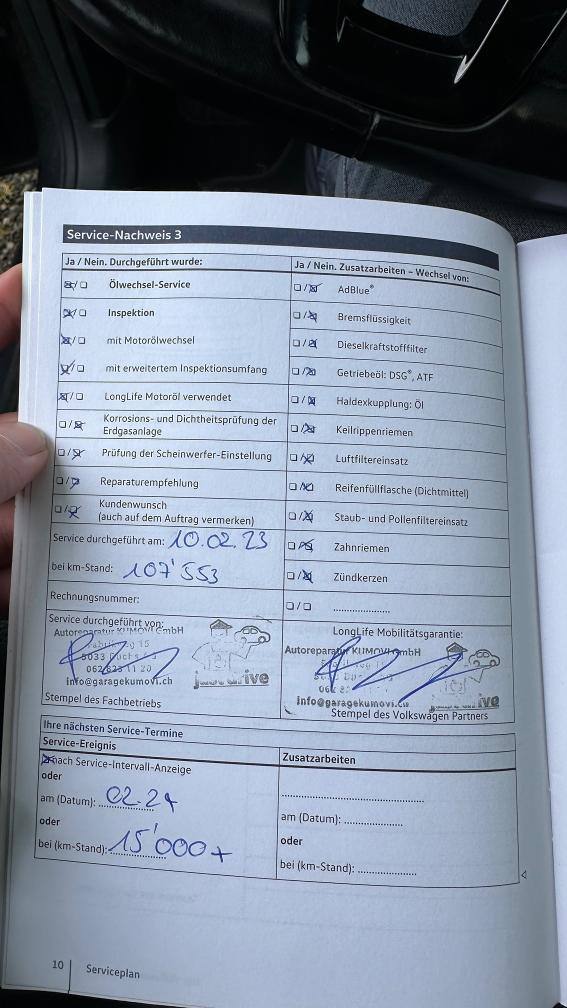 Service-Nachweis 3
Ja / Nein. Durchgeführt wurde:
Ölwechsel-Service
Inspektion
mit Motorölwechsel
mit erweitertem Inspektionsumfang
LongLife Motoröl verwendet
Korrosions- und Dichtheitsprüfung der
Erdgasanlage
Prüfung der Scheinwerfer-Einstellung
Reparaturempfehlung
Kundenwunsch
(auch auf dem Auftrag vermerken)
Service durchgeführt am: 10.02.23
bei km-Stand: 107'553
Rechnungsnummer:
Service durchgeführt von:
Autoreparatur KUMOVI GmbH
15
5033 Buchs
062 823 11 20
info@garagekumovi.ch
just drive
Stempel des Fachbetriebs
Ja / Nein. Zusatzarbeiten – Wechsel von:
AdBlue®
Bremsflüssigkeit
Dieselkraftstofffilter
Getriebeöl: DSG®, ATF
Haldexkupplung: Öl
Keilrippenriemen
Luftfiltereinsatz
Reifenfüllflasche (Dichtmittel)
Staub- und Pollenfiltereinsatz
Zahnriemen
Zündkerzen
....................
LongLife Mobilitätsgarantie:
Autoreparatur KUMOVI GmbH
info@garagekumovi.ch
Stempel des Volkswagen Partners
Ihre nächsten Service-Termine
Service-Ereignis
nach Service-Intervall-Anzeige
oder
am (Datum): 02.24
oder
bei (km-Stand): 15'000+
Zusatzarbeiten
................................................
am (Datum): ....................
oder
bei (km-Stand): ....................
10 Serviceplan